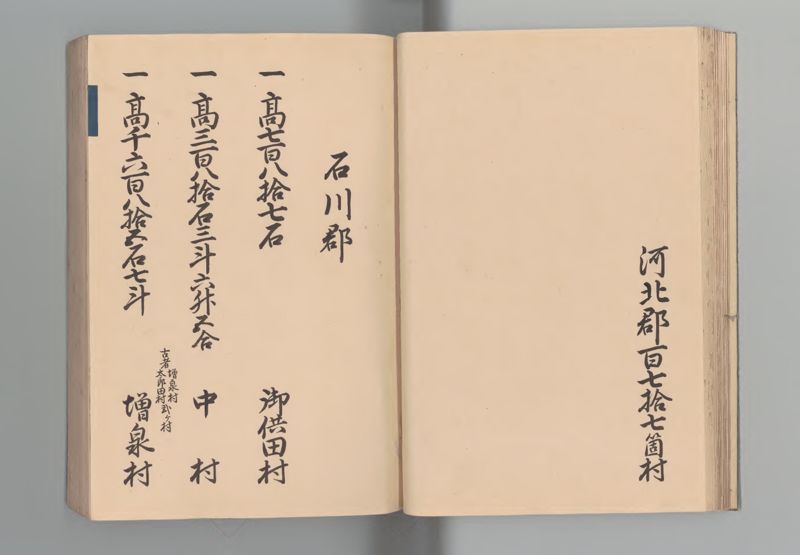 河北郡百七拾七箇村
石川郡
一高七百八拾七石 御供田村
一高三百八拾石三斗六升五合 中村
古者 増泉村 太郎田村 弐ヶ村
一高千六百八拾五石七斗 増泉村